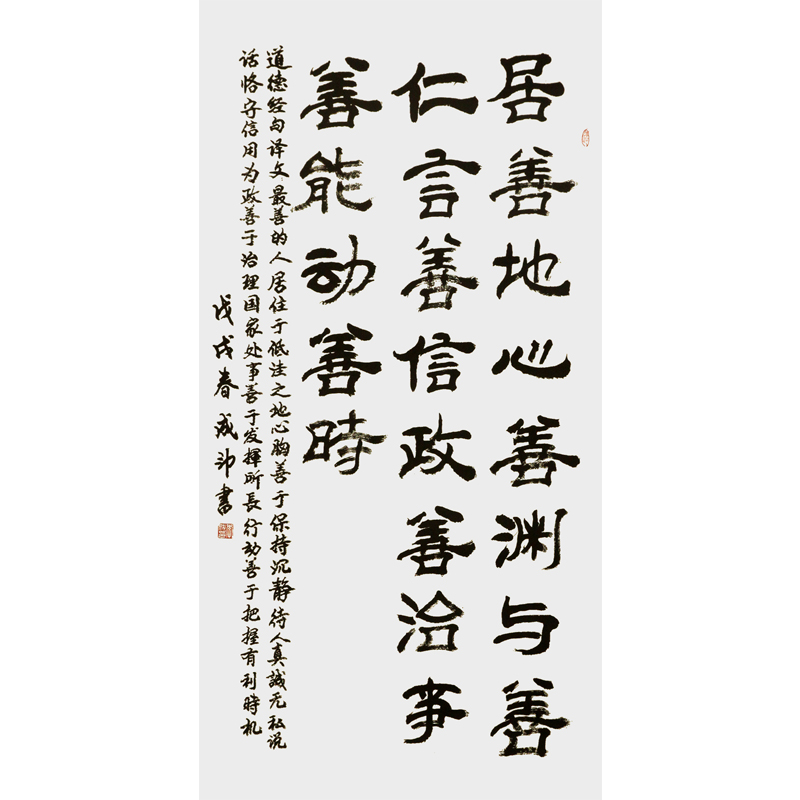 居善地心善渊与善
仁言善信政善治事
善能动善時
道德经句译文最善的人居住于低洼之地心胸善于保持沉静待人真誠无私说
话恪守信用为政善于治理国家处事善于发揮所長行动善于把握有利時机
戊戌春成
書